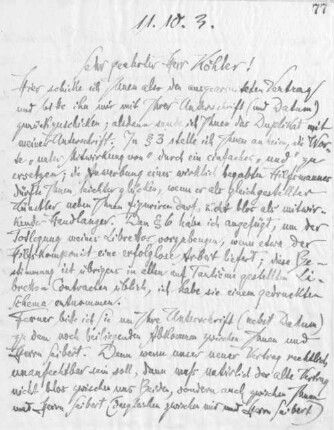 77
11. 10. 3.
Sehr geehrter Herr Köhler!
Hier schicke ich Ihnen also den ausgearbeiteten Vertrag
und bitte ihn mir mit Ihrer Unterschrift (und Datum)
zurückzuschicken; alsdann sende ich Ihnen das Duplikat mit
meiner Unterschrift. In § 3 stelle ich Ihnen anheim, die Wor-
te „unter Mitwirkung von" durch ein einfaches „und" zu
ersetzen; die Anwerbung eines wirklich begabten Hilfsmannes
dürfte Ihnen leichter glücken, wenn er als gleichgestellter
Künstler neben Ihnen figurieren darf, nicht blos als mitwir-
kender Handlanger. Den § 6 habe ich angefügt, um der
Festlegung meines Librettos vorzubeugen, wenn etwa der
Hilfskomponist eine erfolglose Arbeit liefert; diese Be-
stimmung ist übrigens in allen auf Tantième gestellten Li-
bretto-Contracten üblich, ich habe sie einem gedruckten
Schema entnommen.
Ferner bitte ich um Ihre Unterschrift (nebst Datum)
zu dem noch beiliegenden Abkommen zwischen Ihnen und
Herrn Seibert. Denn wenn unser neuer Vertrag rechtlich
unanfechtbar sein soll, dann muß natürlich der alte Vertrag
nicht blos zwischen uns Beiden, sondern auch zwischen Ihnen
und Herrn Seibert (desgleichen zwischen mir und Herrn Seibert)